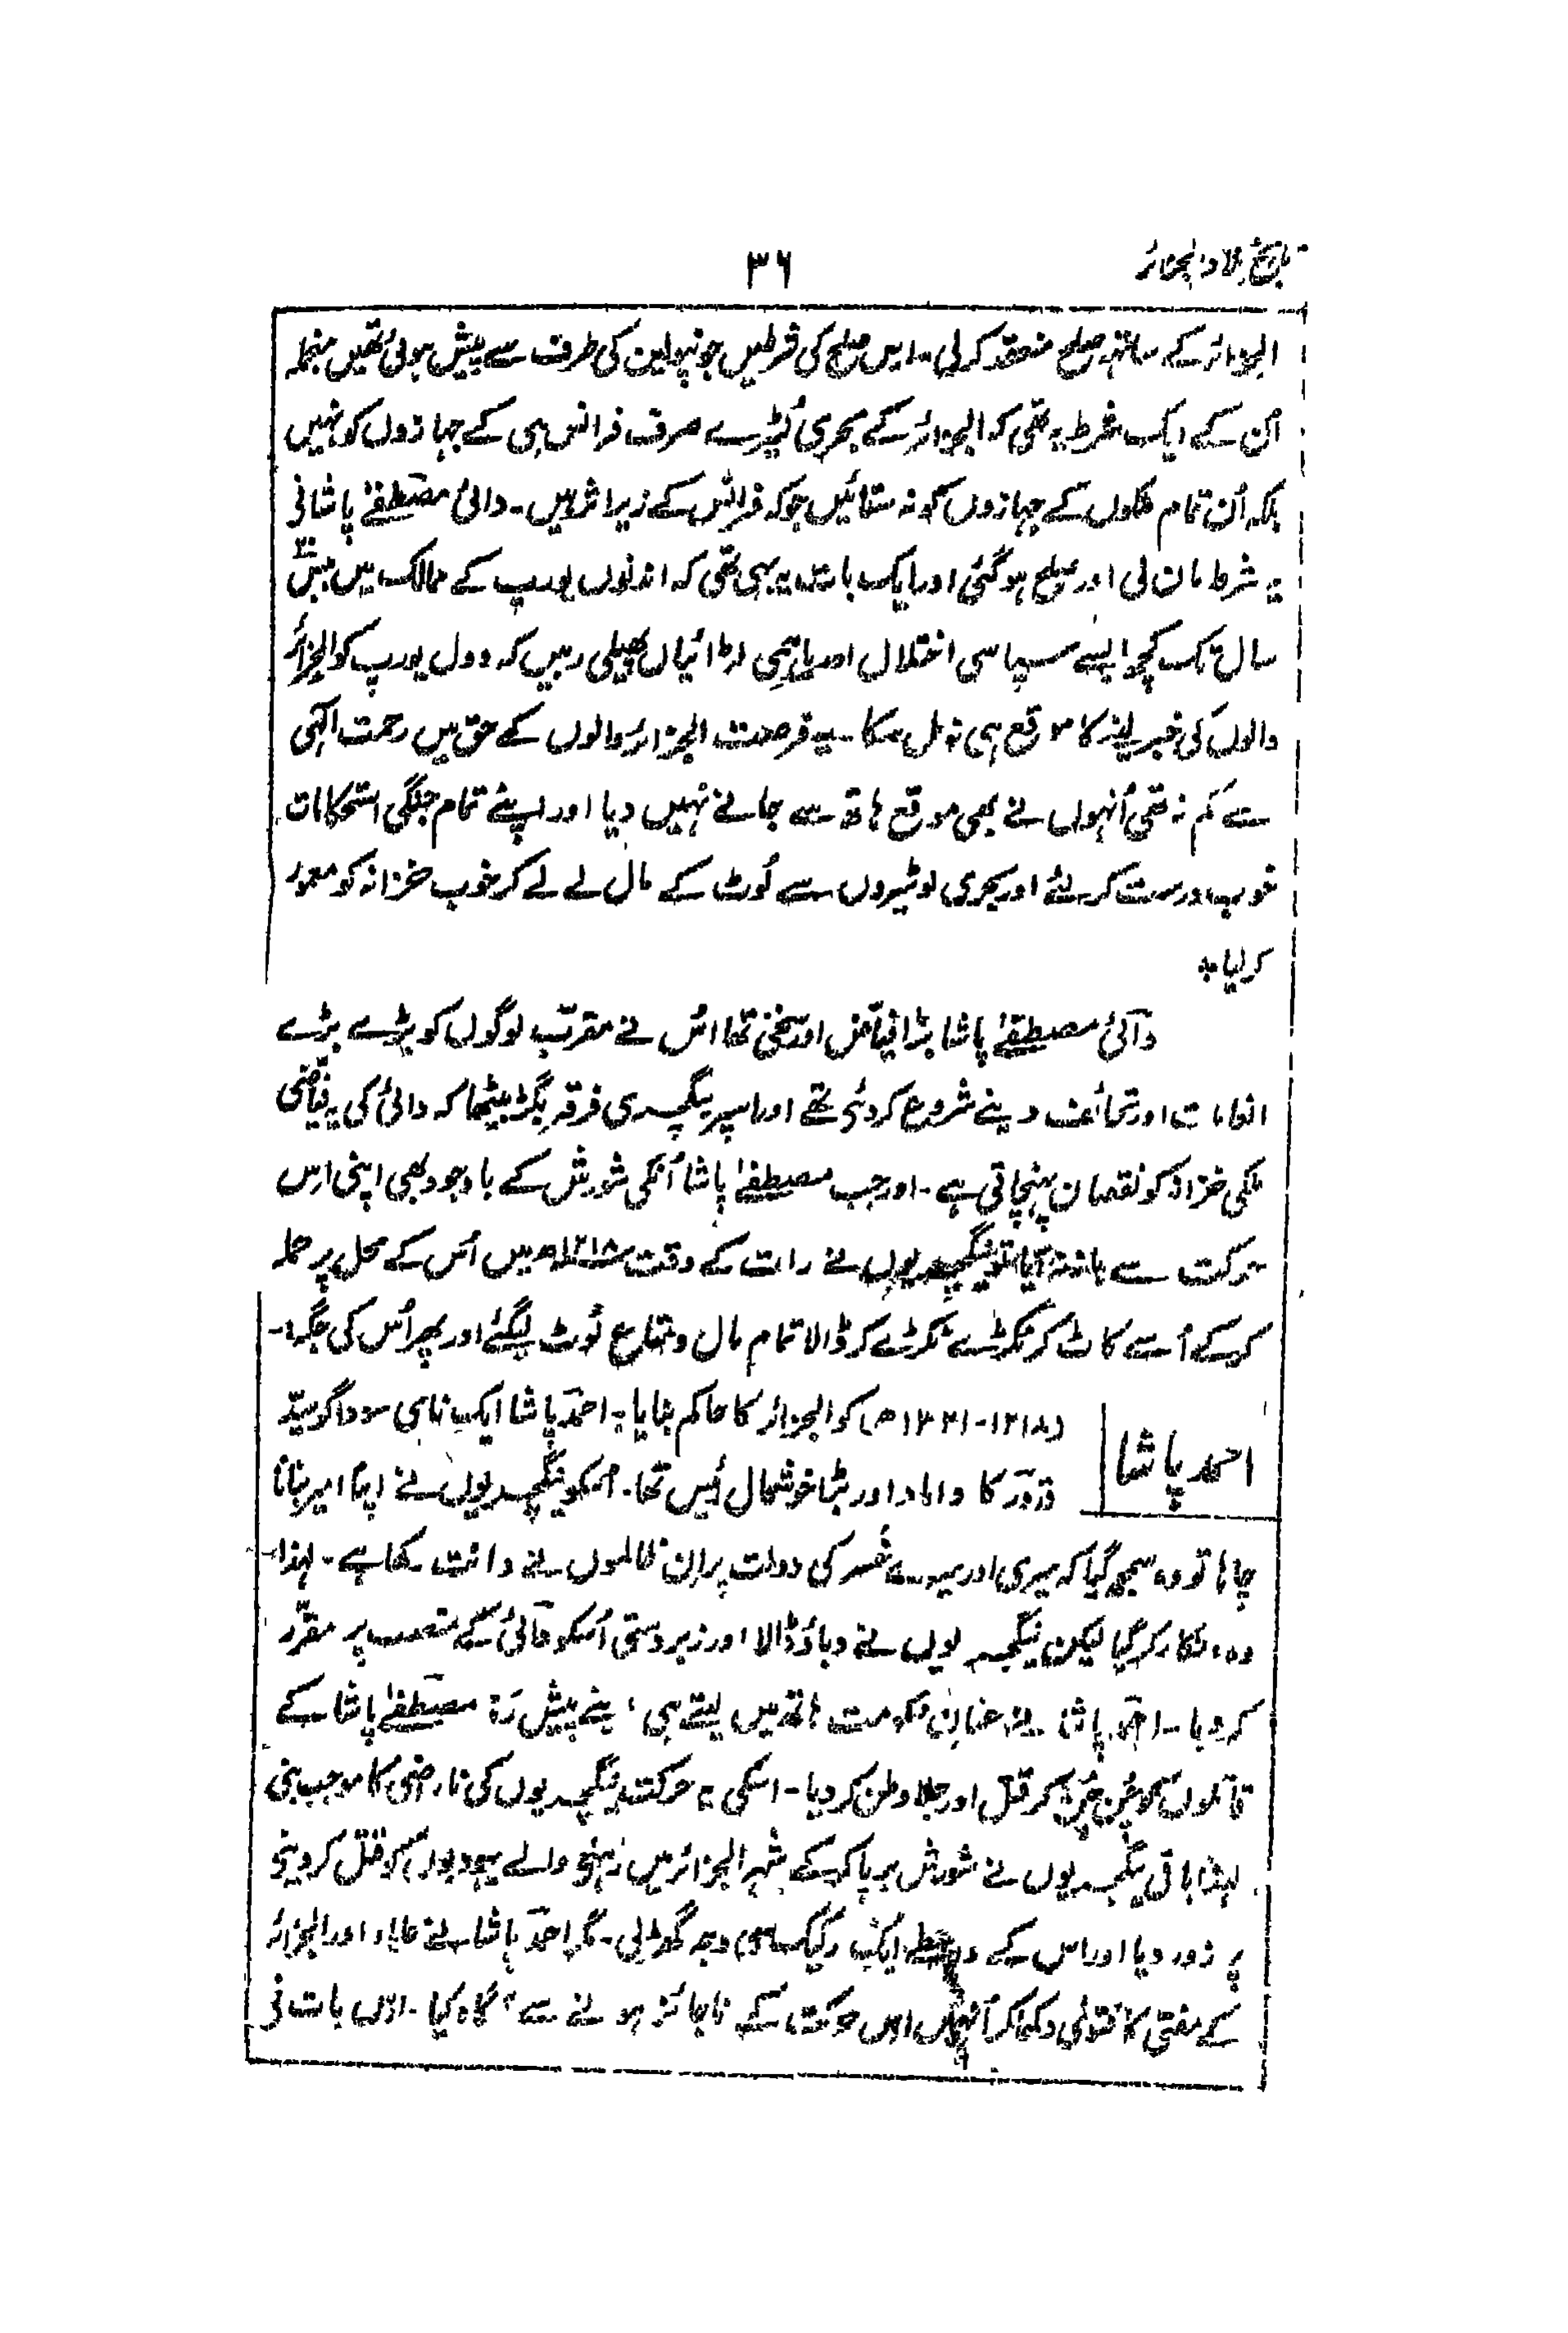 تاریخ بلاد الجزائر
۳۶
الجزائر کے ساتھ صلح منعقد کرلی۔ اس صلح کی شرطیں جو نپولین کی طرف سے پیش ہوئی تھیں منجملہ
اُن کے ایک شرط یہ تھی کہ الجزائر کے بحری لُٹیرے صرف فرانس ہی کے جہازوں کو نہیں
بلکہ اُن تمام ملکوں کے جہازوں کو نہ ستائیں جو کہ فرانس کے زیر اثر ہیں۔ دائی مصطفےٰ پاشا نے
یہ شرط مان لی اور صلح ہوگئی اور ایک بات یہ بھی تھی کہ اندنوں یورپ کے ممالک میں
سال تک کچھ ایسے سیاسی اختلال اور باہمی لڑائیاں پھیلی رہیں کہ دول یورپ کو الجزائر
والوں کی خبر لینے کا موقع ہی نہ مل سکا۔ یہ فرصت الجزائر والوں کے حق میں رحمت الٰہی
سے کم نہ تھی اُنہوں نے بھی موقع ہاتھ سے جانے نہیں دیا اور اپنے تمام جنگی استحکامات
خوب درست کرلئے اور بحری لوٹیروں سے لُوٹ کے مال لے لے کر خوب خزانہ کو معمور
کرلیا۔
دائی مصطفےٰ پاشا بڑا فیاض اور سخی تھا اس نے مقرّب لوگوں کو بڑے بڑے
انعامات اور تحائف دینے شروع کردئے تھے اور اسپر ینگچری فرقہ بگڑ بیٹھا کہ دائی کی یہ فیّاضی
ملکی خزانہ کو نقصان پہنچاتی ہے۔ اور جب مصطفےٰ پاشا اُنکی شورش کے باوجود بھی اپنی اس
حرکت سے باز نہ آیا تو ینگچریوں نے رات کے وقت ۱۲۱۸ھ میں اُس کے محل پر حملہ
کرکے اُسے کاٹ کر ٹکڑے ٹکڑے کر ڈالا تمام مال و متاع لُوٹ لیگئے اور پھر اُس کی جگہ۔
احمد پاشا
(۱۲۱۸-۱۲۲۱ھ) کو الجزائر کا حاکم بنایا۔ احمد پاشا ایک نامی سوداگر سیّد
قدور کا داماد اور بڑا خوشحال رئیس تھا۔ اسکو ینگچریوں نے اپنا امیر بنانا
چاہا تو وہ سمجھ گیا کہ میری اور میرے خُسر کی دولت پر ان ظالموں نے دانت رکھا ہے۔ لہذا
وہ انکار کرگیا لیکن ینگچریوں نے دباؤ ڈالا اور زبردستی اُسکو دائی کے منصب پر مقرّر
کردیا۔ احمد پاشا نے عنان حکومت ہاتھ میں لیتے ہی اپنے پیش رَو مصطفےٰ پاشا کے
قاتلوں کو چُن چُن کر قتل اور جلا وطن کردیا۔ اسکی یہ حرکت ینگچریوں کی ناراضی کا موجب بنی
لہذا باقی ینگچریوں نے شورش برپا کرکے شہر الجزائر میں رہنے والے یہودیوں کو قتل کردینے
پر زور دیا اور اس کے واسطے ایک رکیک سی وجہ گھڑلی۔ مگر احمد پاشا نے علماء اور الجزائر
کے مفتی کا فتویٰ دکھا کر اُنہیں اس حرکت کے ناجائز ہونے سے آگاہ کیا۔ اس بات نے